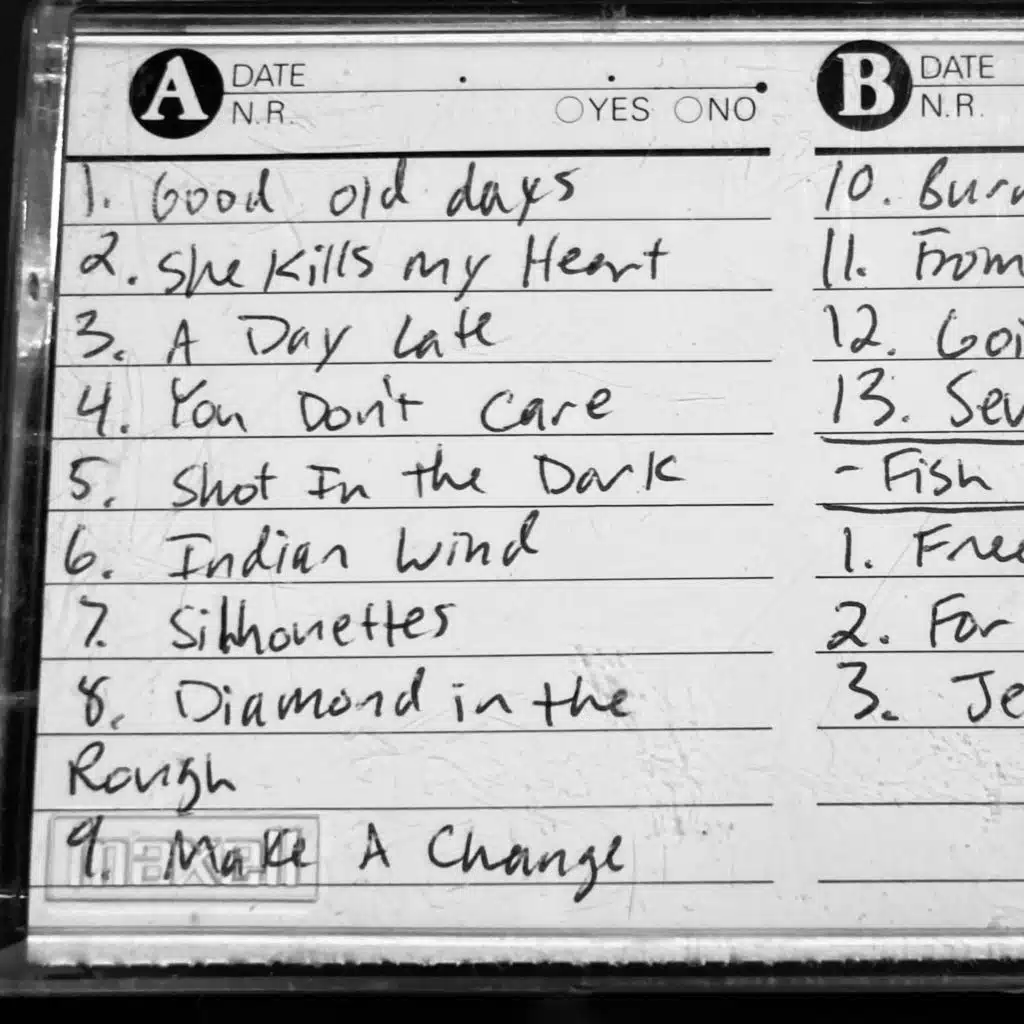 A DATE
N.R. YES NO
1. Good old days
2. She Kills my Heart
3. A Day Late
4. You Don't Care
5. Shot In the Dark
6. Indian Wind
7. Silhhouettes
8. Diamond in the
Rough
9. Make A Change
maxell
B DATE
N.R.
10. Burn
11. From
12. Goi
13. Sev
- Fish
1. Free
2. For
3. Je